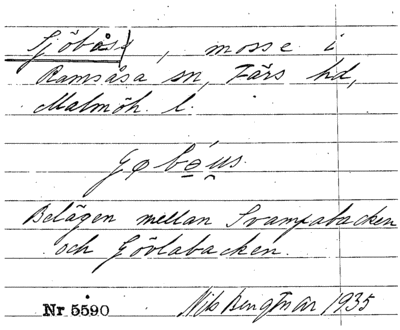 Sjöbåss, mosse i
Ramsåsa sn, Färs hd,
Malmöh. l.
Belägen mellan Svampabacken
och Gövlabacken.
Nr 5590 Nils Bengtmar 1935